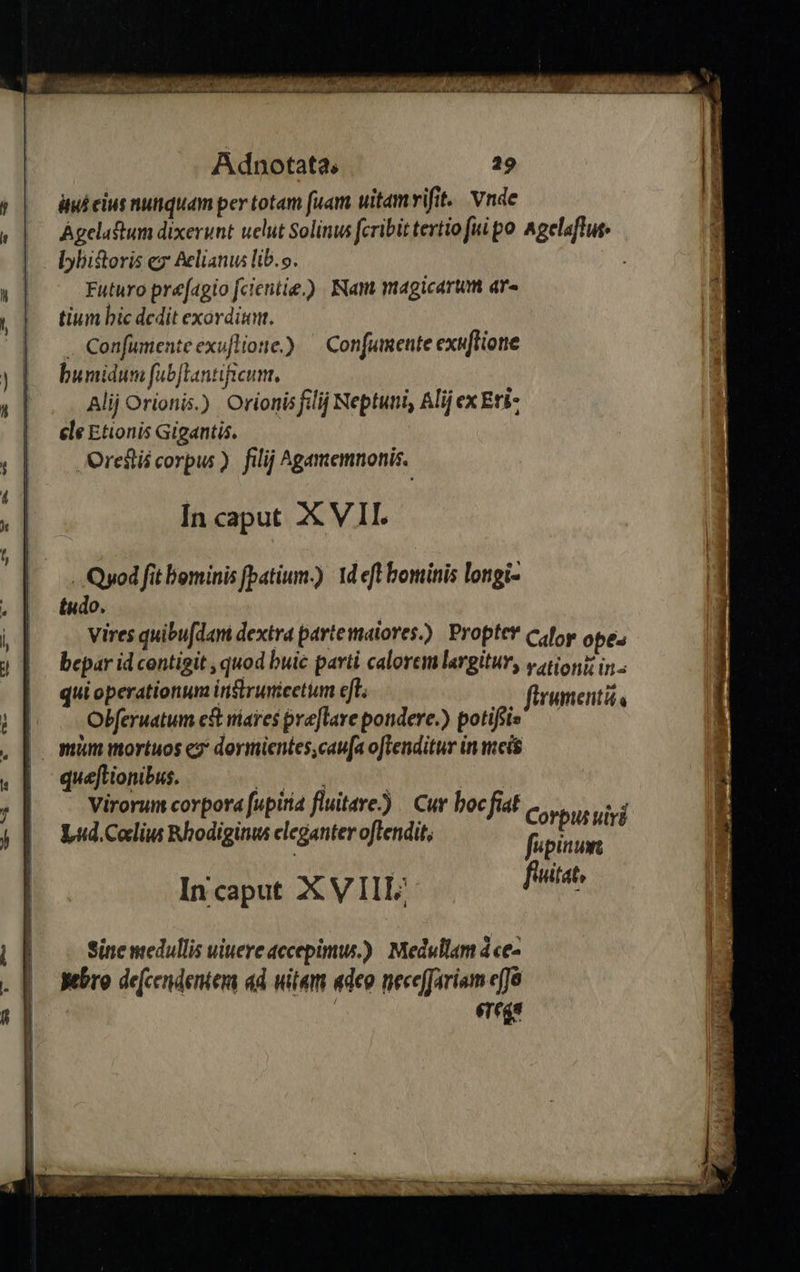 Adnotata. 29
qui eius nunquam per totam ſuam uitam riſit. Vnde
Agelaſtum dixerunt uelut Solinus ſcribit tertio ſui po Agelaſtus.
lyhiſtoris & Aelianus lib.9.
Futuro præſagio ſcientiæ.) Nam magicarum ar-
tium hic dedit exordium.
Conſumente exuſtione.) Conſumente exuſtione
humidum ſubſtantificum.
Alij Orionis.) Orionis filij Neptuni, Alij ex Eri-
cle Etionis Gigantis.
Oreſtis corpus) filij Agamemnonis.
In caput XVII.
Quod fit hominis ſpatium.) Id eſt hominis longi-
tudo.
Vires quibuſdam dextra parte maiores.) Propter Calor ope-
hepar id contigit, quod huic parti calorem largitur, rationũ in-
qui operationum inſtrumeetum eſt. ſtrumentũ.
Obſeruatum eſt mares præſtare pondere.) potiſſi-
mùm mortuos & dormientes, cauſa oſtenditur in meis
quæſtionibus.
Virorum corpora ſupina fluitare.) Cur hoc fiat Corpus uiri
Lud. Cœlius Rhodiginus eleganter oſtendit. ſupinum
fluitat.
In caput XVIII.
Sine medullis uiuere accepimus.) Medullam à ce-
rebro deſcendentem ad uitam adeo neceſſariam eſſe